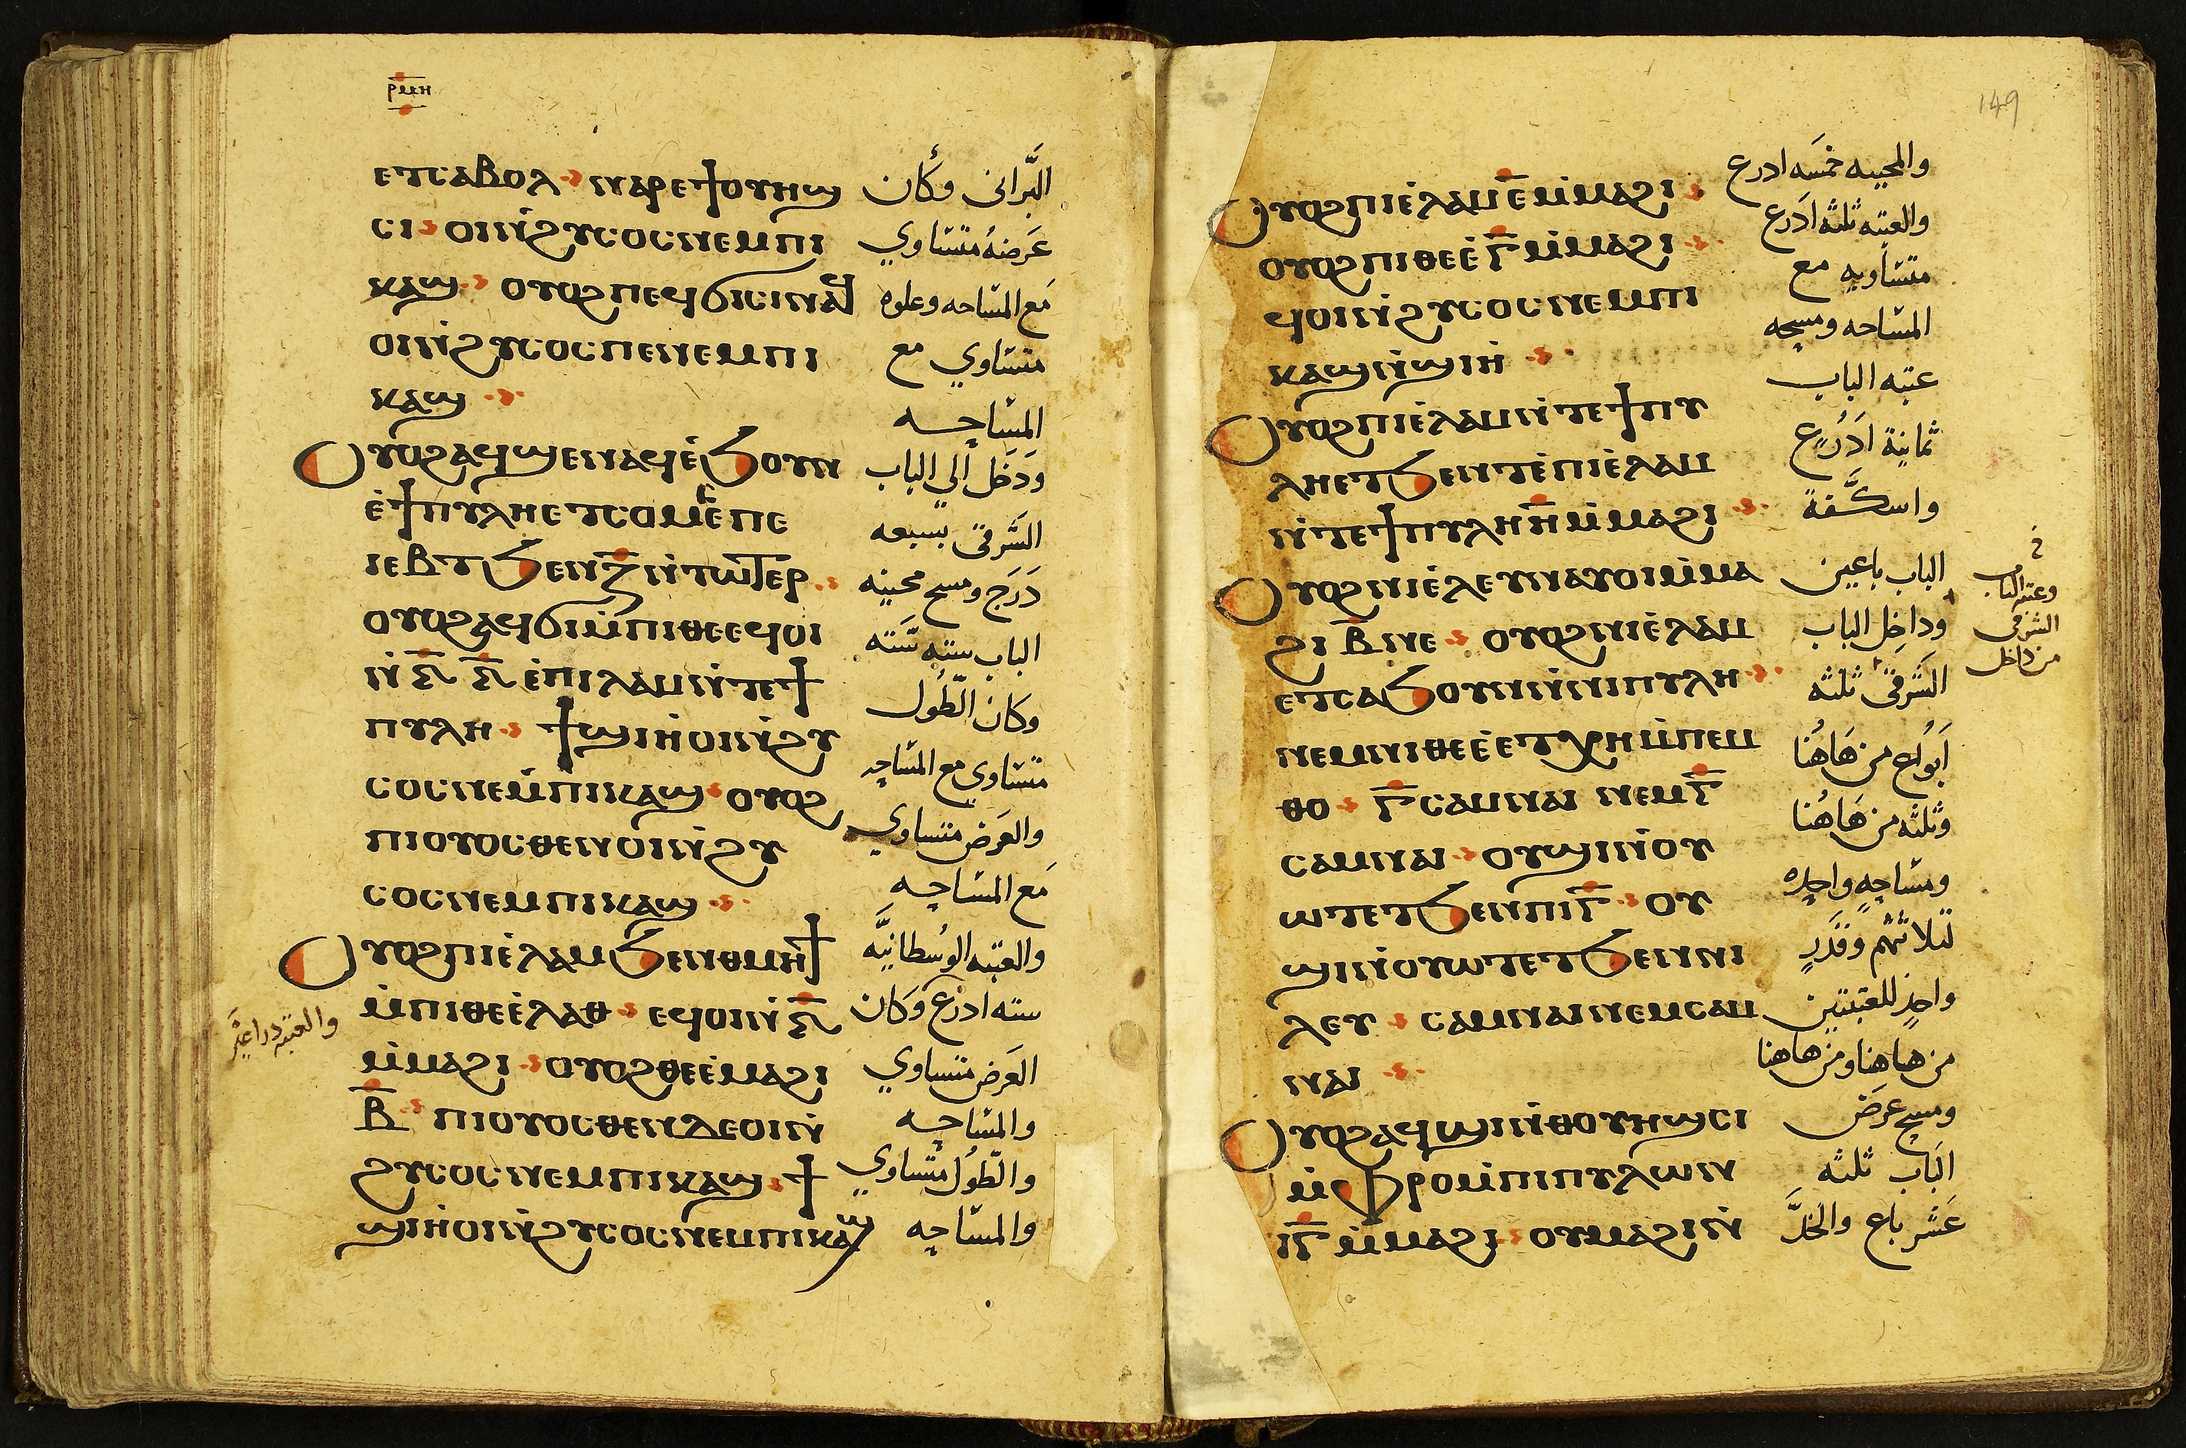 ⲣⲙⲏ
ⲉⲧⲥⲁⲃⲟⲗ ⲛⲁⲣⲉϯⲟⲩⲏϣ
ⲥⲓ ⲟⲓⲛ̇ϩⲩⲥⲟⲥ ⲛⲉⲙⲡⲓ
ⲕⲁϣ ⲟⲩⲟϩ ⲡⲉϥϭⲓⲥⲓ ⲛⲁϥ
ⲟⲓⲛ̇ϩⲩⲥⲟⲥ ⲡⲉ ⲛⲉⲙⲡⲓ
ⲕⲁϣ
ⲟⲩⲟϩ ⲁϥϣⲉⲛⲁϥ ⲉ̇ϧⲟⲩⲛ
ⲉ̇ϯⲡⲩⲗⲏ ⲉⲧⲥⲟⲙⲥ ⲉ̇ⲡⲉ
ⲓⲉⲃⲧ ϧⲉⲛ ⲍ̅ ⲛ̇ⲧⲱⲧⲉⲣ
ⲟⲩⲟϩ ⲁϥϭⲓ ⲙ̇ⲡⲓⲑⲉⲉ ⲉϥⲟⲓ
ⲛ̇ ⲋ̅ ⲋ̅ ⲉ̇ⲡⲓⲗⲁⲙ ⲛ̇ⲧⲉϯ
ⲡⲩⲗⲏ ϯϣⲓⲏ̇ ⲟⲓⲛ̇ϩⲩ
ⲥⲟⲥ ⲛⲉⲙ̇ⲡⲓⲕⲁϣ ⲟⲩⲟϩ
ⲡⲓⲟⲩⲟⲥⲑⲉⲛ ⲟⲓⲛ̇ϩⲩ
ⲥⲟⲥ ⲛⲉⲙⲡⲓⲕⲁϣ
ⲟⲩⲟϩ ⲡⲓⲉ̇ⲗⲁⲙ ϧⲉⲛⲑⲙⲏϯ
ⲙ̇ⲡⲓⲑⲉⲉ̇ⲗⲁⲑ ⲉϥⲟⲓⲛ̇ ⲋ̅
ⲙ̇ⲙⲁϩⲓ ⲟⲩⲟϩ ⲑⲉⲉ̇ⲙⲁϩⲓ
ⲃ̅ ⲡⲓⲟⲩⲟⲥⲑⲉⲛ ⲇⲉ ⲟⲓⲛ̇
ϩⲩⲥⲟⲥ ⲛⲉⲙⲡⲓⲕⲁϣ ϯ
ϣⲓⲏ̇ ⲟⲓⲛ̇ϩⲩⲥⲟⲥ ⲛⲉⲙⲡⲓⲕⲁϣ
البراني وكان
عرضه متساوي
مع المساحه وعلوه
متساوي مع
المساحه
ودخل الي الباب
الشرقي بسبعه
درج ومسح محبيه
الباب سته سته
وكان الطول
متساوي مع المساحه
والعرض متساوي
مع المساحه
والعتبه الوسطانيه
سته ادرع وكان
العرض متساوي
والمساحه
والطول متساوي
والمساحه
والعتبه دراعين
149
ⲟⲩⲟϩ ⲡⲓⲉ̇ⲗⲁⲙ ⲉ̅ ⲙ̇ⲙⲁϩⲓ
ⲟⲩⲟϩ ⲡⲓⲑⲉⲉ̇ ⲅ̅ ⲙ̇ⲙⲁϩⲓ
ϥⲟⲓⲛ̇ϩⲩⲥⲟⲥ ⲛⲉⲙⲡⲓ
ⲕⲁϣ ⲛ̇ϣⲓⲏ̇
ⲟⲩⲟϩ ⲡⲓⲉ̇ⲗⲁⲙ ⲛ̇ⲧⲉϯⲡⲩ
ⲗⲏ ⲉⲧϧⲉⲛⲧⲉ̇ⲡⲓⲉ̇ⲗⲁⲙ
ⲛ̇ⲧⲉϯⲡⲩⲗⲏ ⲏ̅ ⲙ̇ⲙⲁϩⲓ
ⲟⲩⲟϩ ⲛⲓⲉ̇ⲗⲉⲩ ⲛⲁⲩⲟⲓ ⲙ̇ⲙⲁ
ϩⲓ ⲃ̅ ⲛⲉ ⲟⲩⲟϩ ⲛⲓⲉ̇ⲗⲁⲙ
ⲉⲧⲥⲁϧⲟⲩⲛ ⲛ̇ⲛⲓⲡⲩⲗⲏ
ⲛⲉⲙⲛⲓⲑⲉⲉ̇ ⲉⲧⲭⲏ ⲙ̇ⲡⲉⲙ
ⲑⲟ ⲅ̅ ⲥⲁⲙⲛⲁⲓ ⲛⲉⲙ ⲅ̅
ⲥⲁⲙⲛⲁⲓ ⲟⲩϣⲓ ⲛ̇ⲟⲩ
ⲱⲧ ⲉⲧϧⲉⲛⲡⲓ ⲅ̅ ⲟⲩ
ϣⲓ ⲛ̇ⲟⲩⲱⲧ ⲉⲧϧⲉⲛ ⲛⲓ
ⲗⲉⲩ ⲥⲁⲙⲛⲁⲓ ⲛⲉⲙ ⲥⲁⲙ
ⲛⲁⲓ
ⲟⲩⲟϩ ⲁϥϣⲓ ⲛ̇ⲑⲟⲩⲏϣⲥⲓ
ⲙ̇ⲫⲣⲟ ⲙ̇ⲡⲓⲡⲩⲗⲱⲛ
ⲓ̅ⲅ̅ ⲙ̇ⲙⲁϩⲓ ⲟⲩⲙⲁϩⲓ ⲛ̇
والمحبيه خمسه ادرع
والعتبه ثلثه ادرع
متساويه مع
المساحه ومسحه
عتبه الباب
ثمانية ادرع
واسكفة
الباب باعين
وداخل الباب
الشرقي ثلثه
ابواح من هاهنا
وثلثه من هاهنا
ومساحه واحده
لثلاثتهم وقدر
واحد للعتبتين
من هاهنا ومن هاهنا
ومسح عرض
الباب ثلثه
عشر باع والخل
وعتبه الباب
الشرقي
من داخل